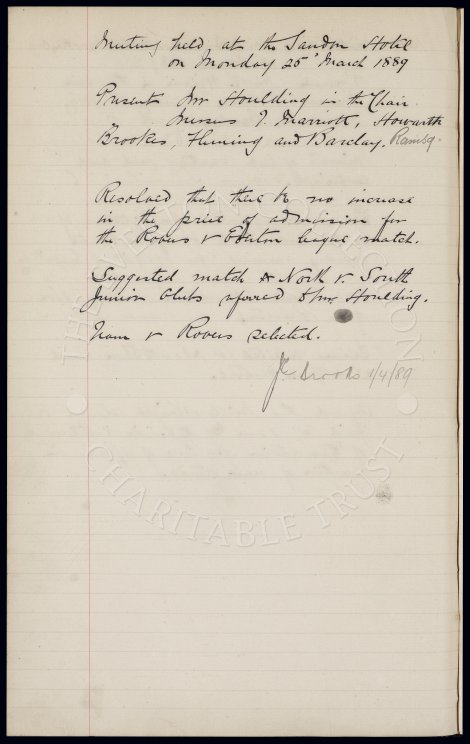 Meeting held at the Sandon Hotel
on Monday 25th March 1889
Present Mr Houlding in the Chair.
Messrs J. Marriott, Howarth
Brookes, Fleming and Barclay. Ramsay.
Resolved that there be no increase
in the price of admission for
the Rovers v Everton league match.
Suggested match North v. South
Junior Clubs referred to Mr Houlding.
Team v Rovers selected.
Brooks 1/4/89
THE EVERTON COLLECTION
CHARITABLE TRUST